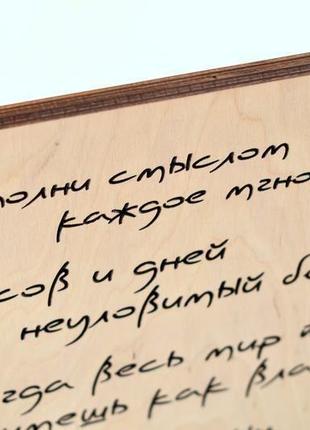 полни смыслом
каждое мгно
сов и дней
неуловимый б
гда весь мир
мешь как вла